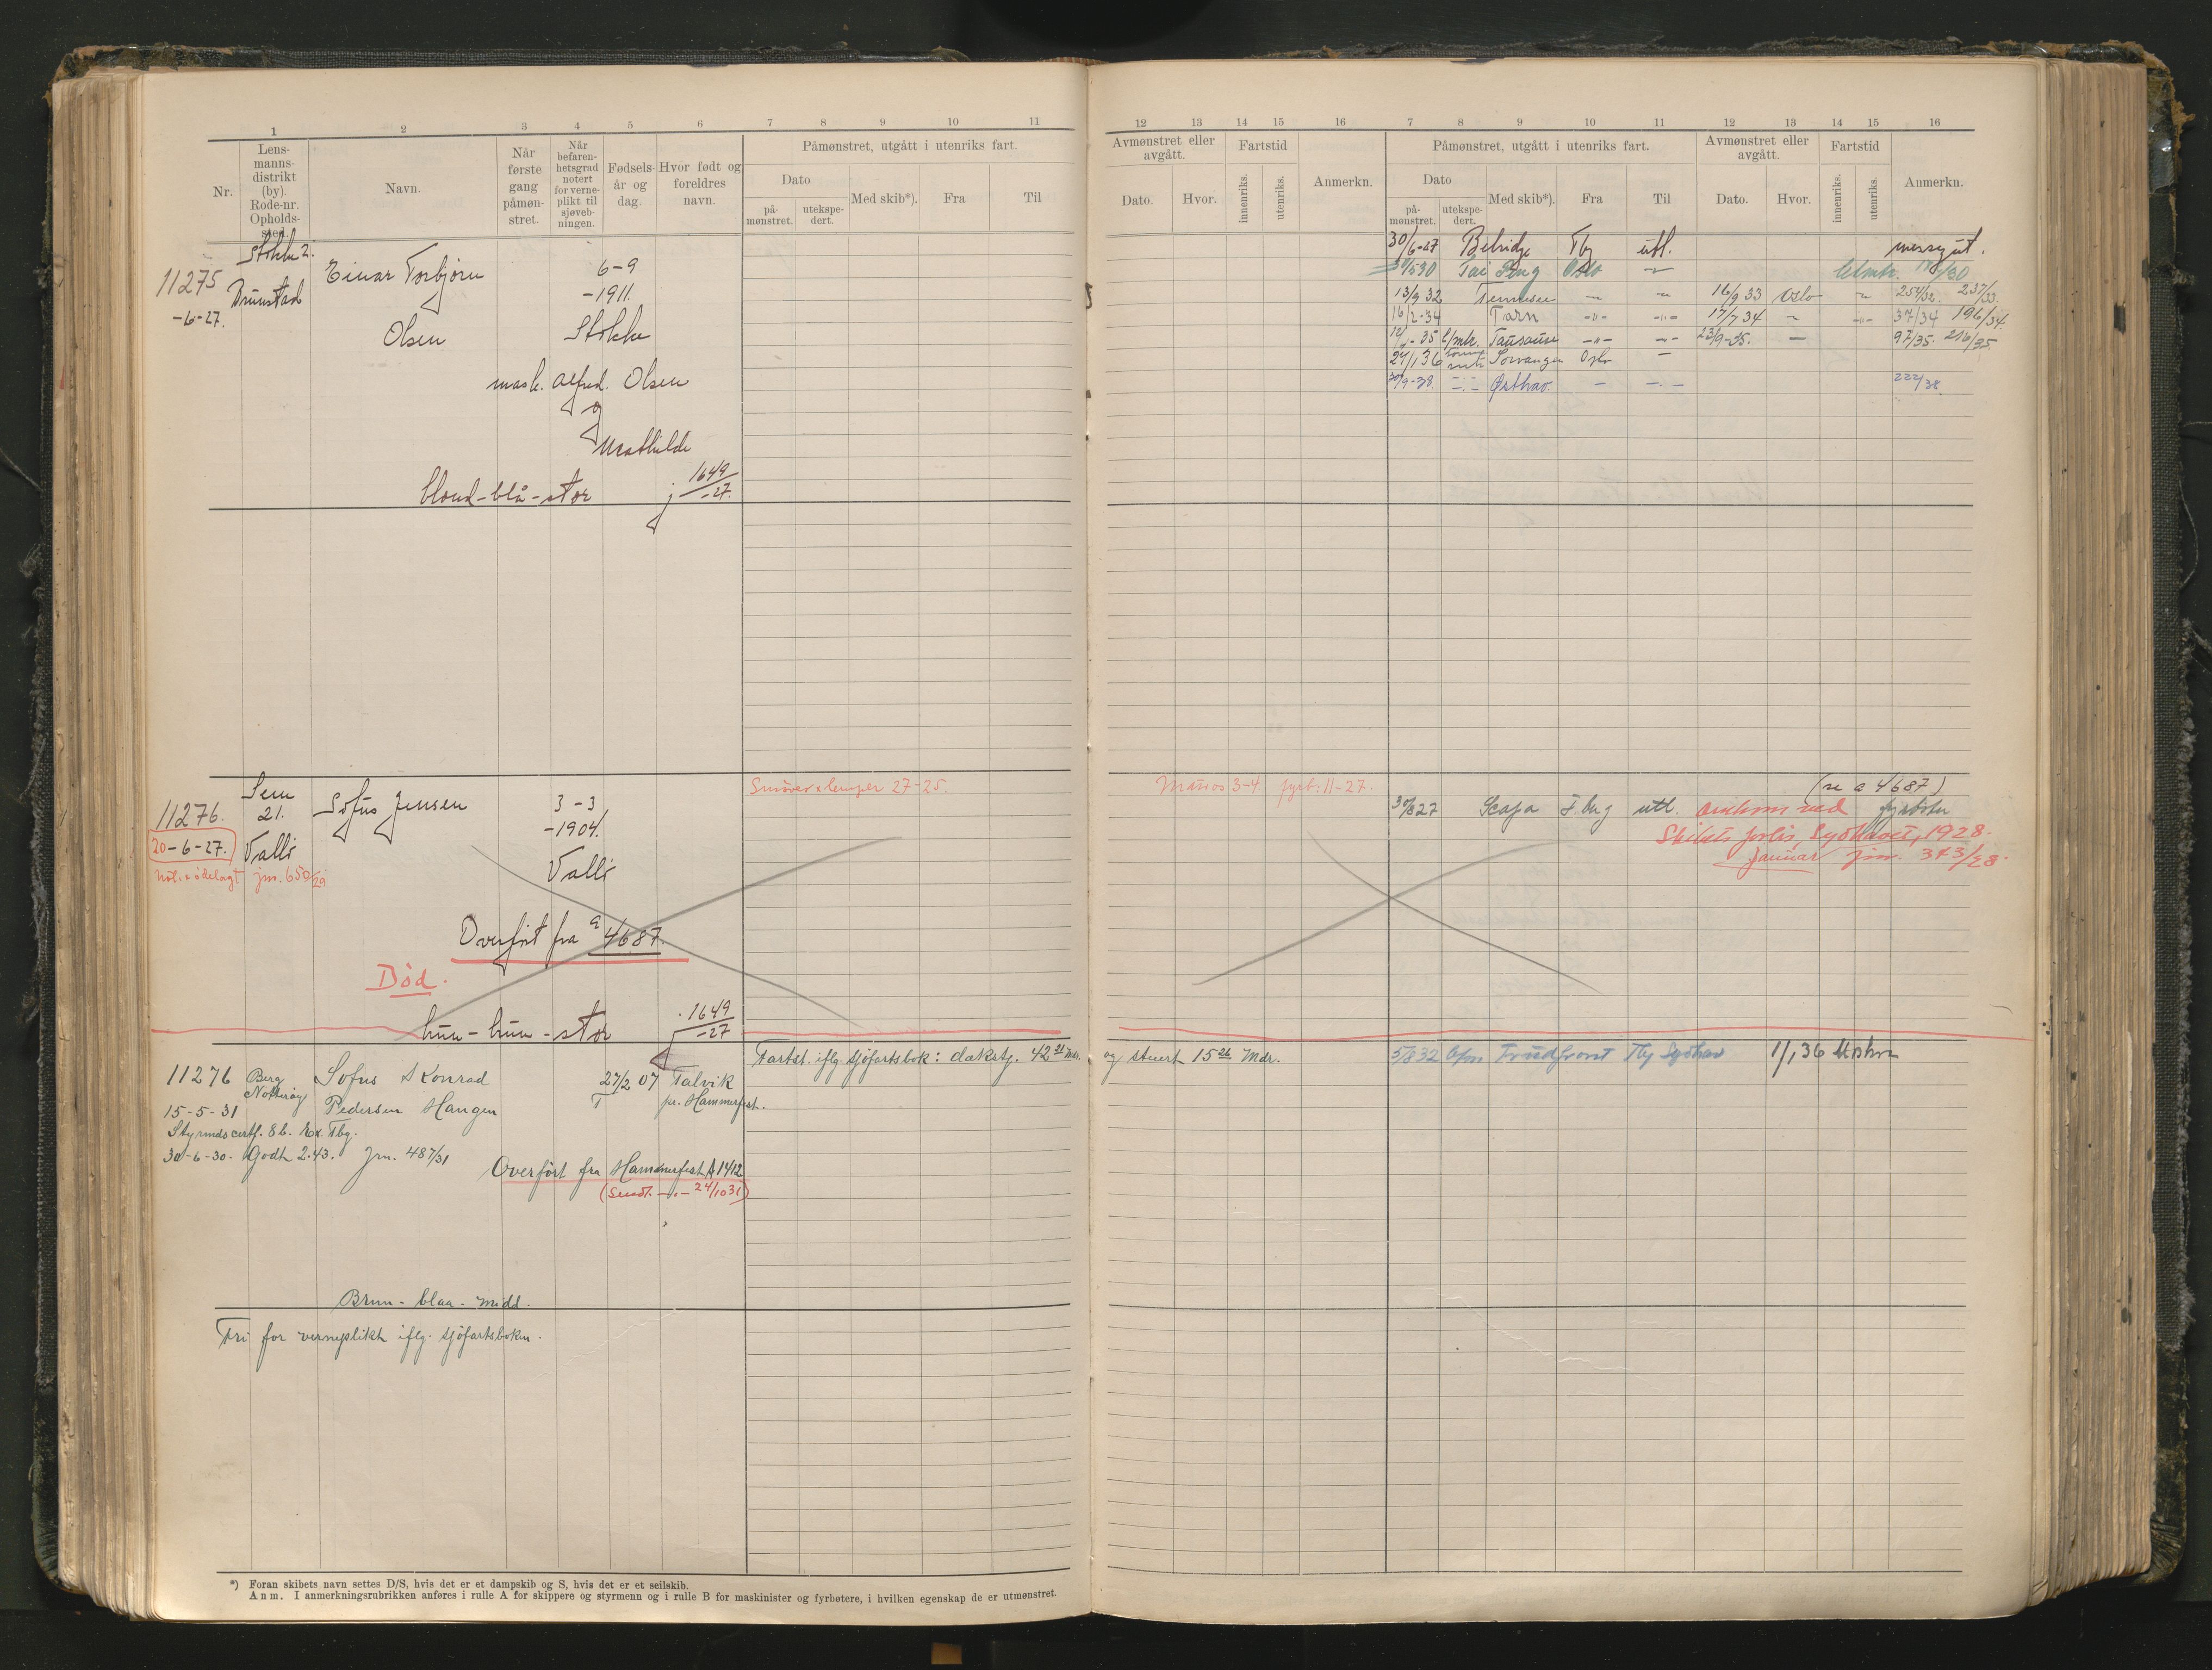 1 2 3 4 5 6 7 8 9 10 11
Nr.
Lens-
manns-
distrikt
(by).
Rode-nr.
Opholds-
sted.
Navn.
Når
første
gang
påmøn-
stret.
Når
befaren-
hetsgrad
notert
for verne-
plikt til
sjøveb-
ningen.
Fødsels-
år og
dag.
Hvor født og
foreldres
navn.
Påmønstret, utgått i utenriks fart.
Dato
på-
mønstret.
utekspe-
dert.
Med skib*).
Fra
Til
Stokke 2.
11275 Einar Torbjørn 6-9
Brunstad -1911.
-6-27.
Olsen Stokke
mask. Alfred. Olsen
og
Mathilde
blond-blå-stor j 1649/-27.
Sem
11276. 21. Sofus Jensen 3-3
-1904.
20-6-27. Vallö
Vallö
jnr. 650/29
Overført fra a 4687.
Død.
brun-brun-stor 1649/-27
11276 Berg Sofus Konrad 27/2 07 Talvik
Nøtterøy pr. Hammerfest.
15-5-31 Pedersen Haugen
Styrmdscertf. 8b. Ex. Tbg.
30-6-30. Godh 2.43. Jrn. 487/31
Overført fra Hammerfest A 1412
(Sendt. -„- 24/10 31)
Brun - blaa - midd.
Fri for verneplikt iflg. sjöfartsboken.
Smører & lemper 27-25.
Fartst. iflg. sjöfartsbok: dækstj. 42 21 Mdr.
*) Foran skibets navn settes D/S, hvis det er et dampskib og S, hvis det er et seilskib.
Anm. I anmerkningsrubrikken anføres i rulle A for skippere og styrmenn og i rulle B for maskinister og fyrbøtere, i hvilken egenskap de er utmønstret.
12 13 14 15 16 7 8 9 10 11 12 13 14 15 16
Avmønstret eller
avgått.
Dato.
Hvor.
Fartstid
innenriks.
utenriks.
Anmerkn.
Påmønstret, utgått i utenriks fart.
Dato
på-
mønstret.
utekspe-
dert.
Med skib*).
Fra
Til
Avmønstret eller
avgått.
Dato.
Hvor.
Fartstid
innenriks.
utenriks.
Anmerkn.
30/6-27 Belridge Tbg utl. messegut.
30/5 30 Tai Ping Oslo
13/9 32 Tennesee 16/9 33 Oslo 254/32. 237/33.
16/2-34 Tarn -"- -"- 17/7 34 -"- 37/34 196/34.
35 Taurus -"- -"- 23/9-35. 97/35. 216/35
24/1 36 Oslo
30/9-38. Østhav. 222/38.
3-4 fyrb: 11-27.
(se a 4687)
30/6 27 Scapa T.berg utl. omkom ved fyrböter
Skibets forlis, Sydhavet, 1928.
Januar jnr. 343/28.
og stuert 15 26 Mdr.
5/8 32 Tbg Sydhav 1/1 36